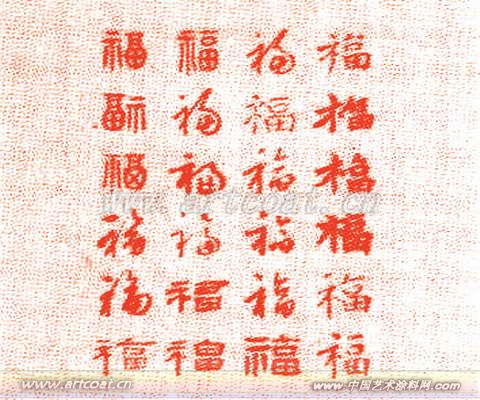 福福福福
福福福福
福福福福
www.artcoat.cn
福福福福
福福福福
福福福福
www.artcoat.cn
www.中国艺术涂料网.com